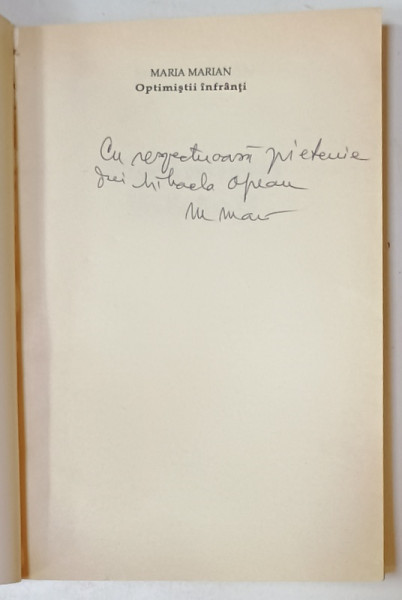 MARIA MARIAN
Optimiştii înfrânţi
Cu respectuoasă prietenie
Mihaela
M Mar